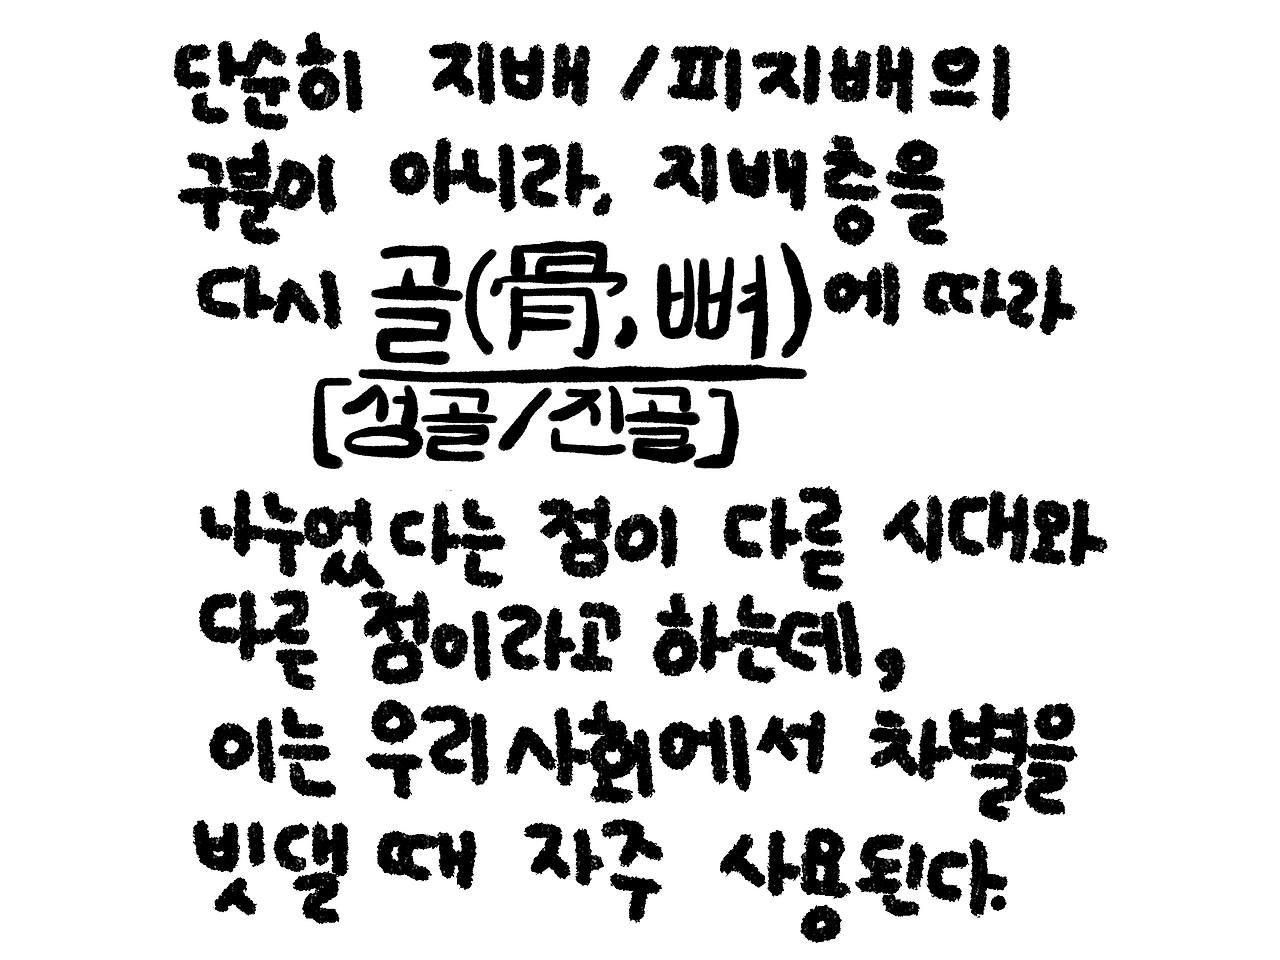 단순히 지배 / 피지배의
구분이 아니라, 지배층을
다시 골(骨, 뼈)에 따라
[성골/진골]
나누었다는 점이 다른 시대와
다른 점이라고 하는데,
이는 우리 사회에서 차별을
빗댈 때 자주 사용된다.